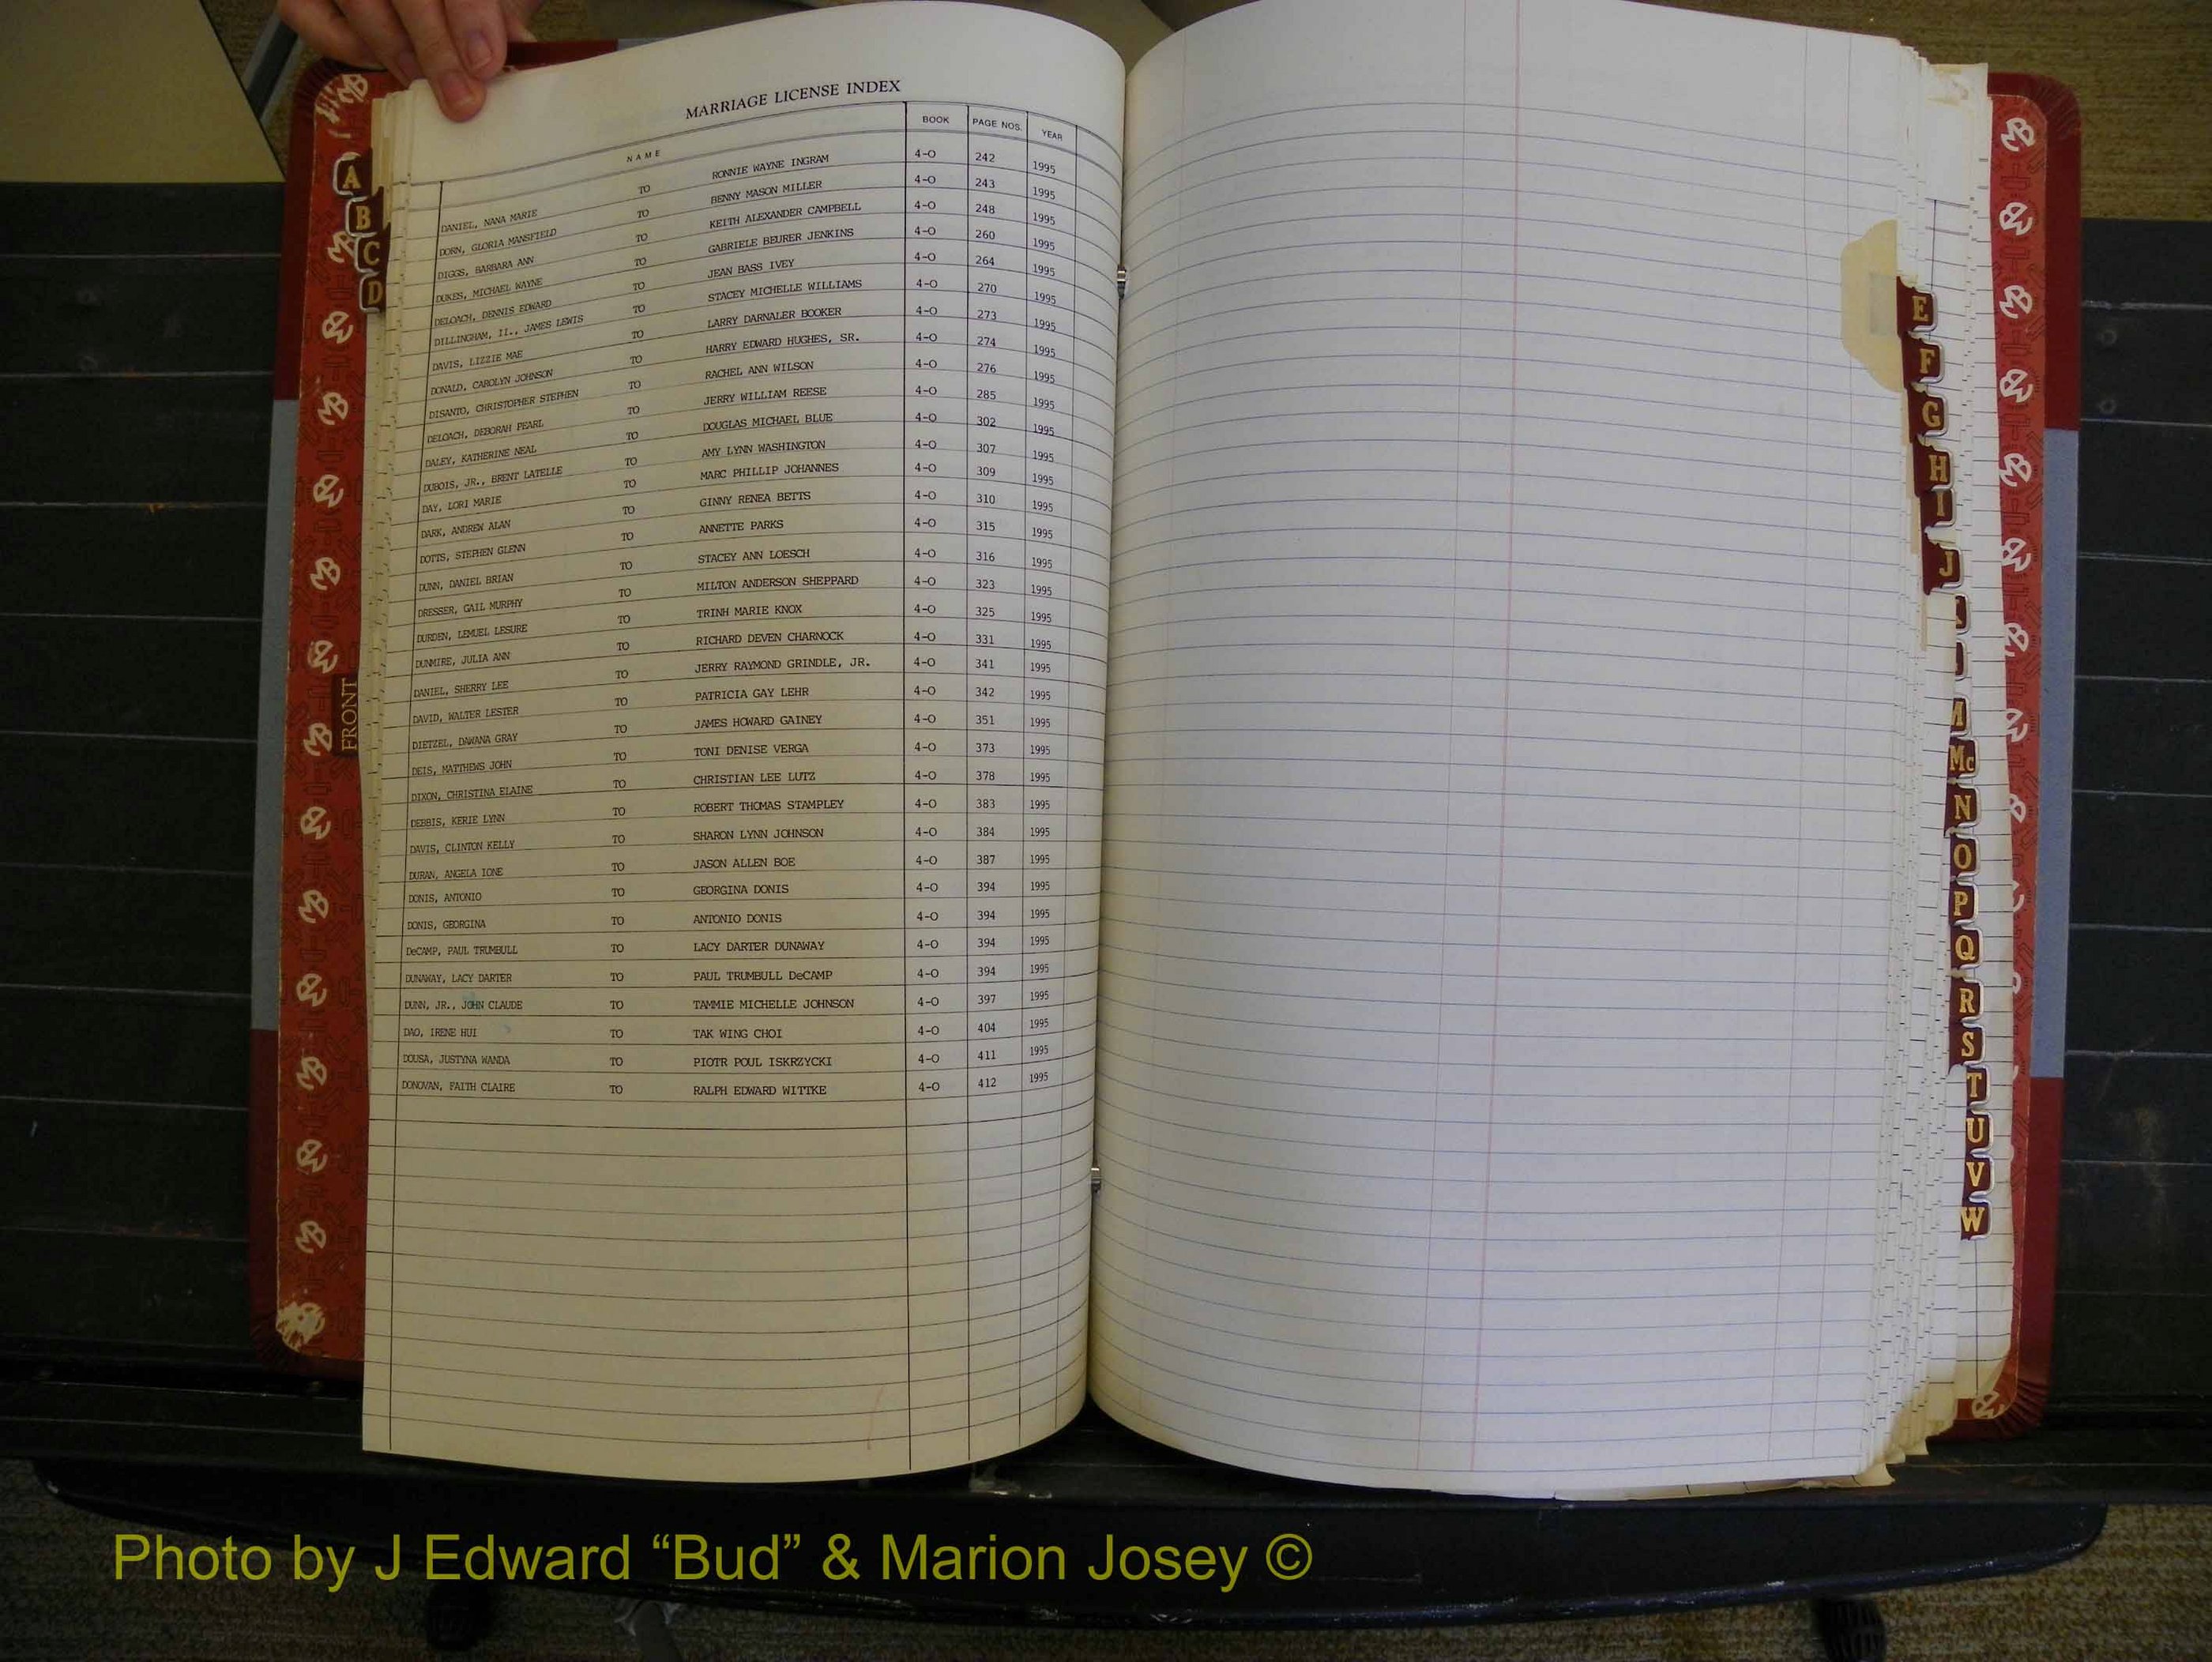 MARRIAGE LICENSE INDEX
NAME BOOK PAGE NOS. YEAR
DANIEL, NANA MARIE TO RONNIE WAYNE INGRAM 4-O 242 1995
DORN, GLORIA MANSFIELD TO BENNY MASON MILLER 4-O 243 1995
DIGGS, BARBARA ANN TO KEITH ALEXANDER CAMPBELL 4-O 248 1995
DUKES, MICHAEL WAYNE TO GABRIELE BEURER JENKINS 4-O 260 1995
DELOACH, DENNIS EDWARD TO JEAN BASS IVEY 4-O 264 1995
DILLINGHAM, II., JAMES LEWIS TO STACEY MICHELLE WILLIAMS 4-O 270 1995
DAVIS, LIZZIE MAE TO LARRY DARNALER BOOKER 4-O 273 1995
DONALD, CAROLYN JOHNSON TO HARRY EDWARD HUGHES, SR. 4-O 274 1995
DISANTO, CHRISTOPHER STEPHEN TO RACHEL ANN WILSON 4-O 276 1995
DELOACH, DEBORAH PEARL TO JERRY WILLIAM REESE 4-O 285 1995
DALEY, KATHERINE NEAL TO DOUGLAS MICHAEL BLUE 4-O 302 1995
DUBOIS, JR., BRENT LATELLE TO AMY LYNN WASHINGTON 4-O 307 1995
DAY, LORI MARIE TO MARC PHILLIP JOHANNES 4-O 309 1995
DARK, ANDREW ALAN TO GINNY RENEA BETTS 4-O 310 1995
DOTTS, STEPHEN GLENN TO ANNETTE PARKS 4-O 315 1995
DUNN, DANIEL BRIAN TO STACEY ANN LOESCH 4-O 316 1995
DRESSER, GAIL MURPHY TO MILTON ANDERSON SHEPPARD 4-O 323 1995
DURDEN, LEMUEL LESURE TO TRINH MARIE KNOX 4-O 325 1995
DUNMIRE, JULIA ANN TO RICHARD DEVEN CHARNOCK 4-O 331 1995
DANIEL, SHERRY LEE TO JERRY RAYMOND GRINDLE, JR. 4-O 341 1995
DAVID, WALTER LESTER TO PATRICIA GAY LEHR 4-O 342 1995
DIETZEL, DAWANA GRAY TO JAMES HOWARD GAINEY 4-O 351 1995
DEIS, MATTHEWS JOHN TO TONI DENISE VERGA 4-O 373 1995
DIXON, CHRISTINA ELAINE TO CHRISTIAN LEE LUTZ 4-O 378 1995
DEBBIS, KERIE LYNN TO ROBERT THOMAS STAMPLEY 4-O 383 1995
DAVIS, CLINTON KELLY TO SHARON LYNN JOHNSON 4-O 384 1995
DURAN, ANGELA IONE TO JASON ALLEN BOE 4-O 387 1995
DONIS, ANTONIO TO GEORGINA DONIS 4-O 394 1995
DONIS, GEORGINA TO ANTONIO DONIS 4-O 394 1995
DeCAMP, PAUL TRUMBULL TO LACY DARTER DUNAWAY 4-O 394 1995
DUNAWAY, LACY DARTER TO PAUL TRUMBULL DeCAMP 4-O 394 1995
DUNN, JR., JOHN CLAUDE TO TAMMIE MICHELLE JOHNSON 4-O 397 1995
DAO, IRENE HUI TO TAK WING CHOI 4-O 404 1995
DOUSA, JUSTYNA WANDA TO PIOTR POUL ISKRZYCKI 4-O 411 1995
DONOVAN, FAITH CLAIRE TO RALPH EDWARD WITTKE 4-O 412 1995
A
B
C
D
FRONT
E
F
G
H
I
J
M
Mc
N
O
P
Q
R
S
T
U
V
W
Photo by J Edward “Bud” & Marion Josey ©